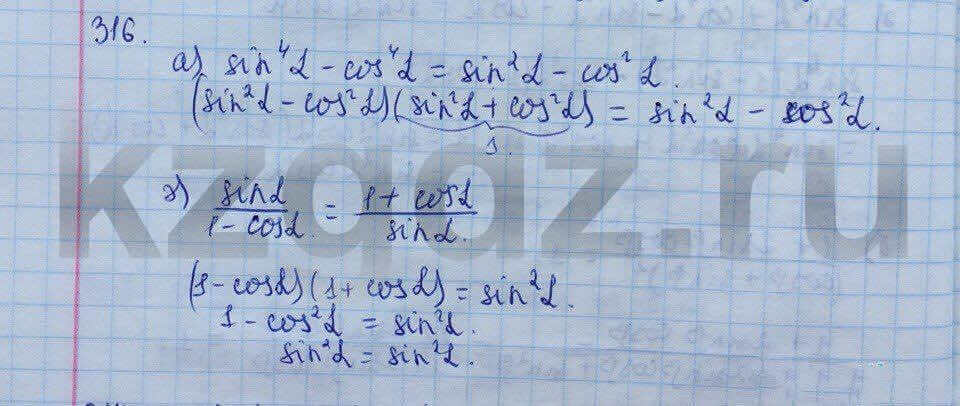 316.
а) sin⁴α - cos⁴α = sin²α - cos²α.
(sin²α - cos²α)(sin²α + cos²α) = sin²α - cos²α.
1.
г) sinα / 1 - cosα = 1 + cosα / sinα.
(1 - cosα)(1 + cosα) = sin²α.
1 - cos²α = sin²α.
sin²α = sin²α.
kzgdz.ru